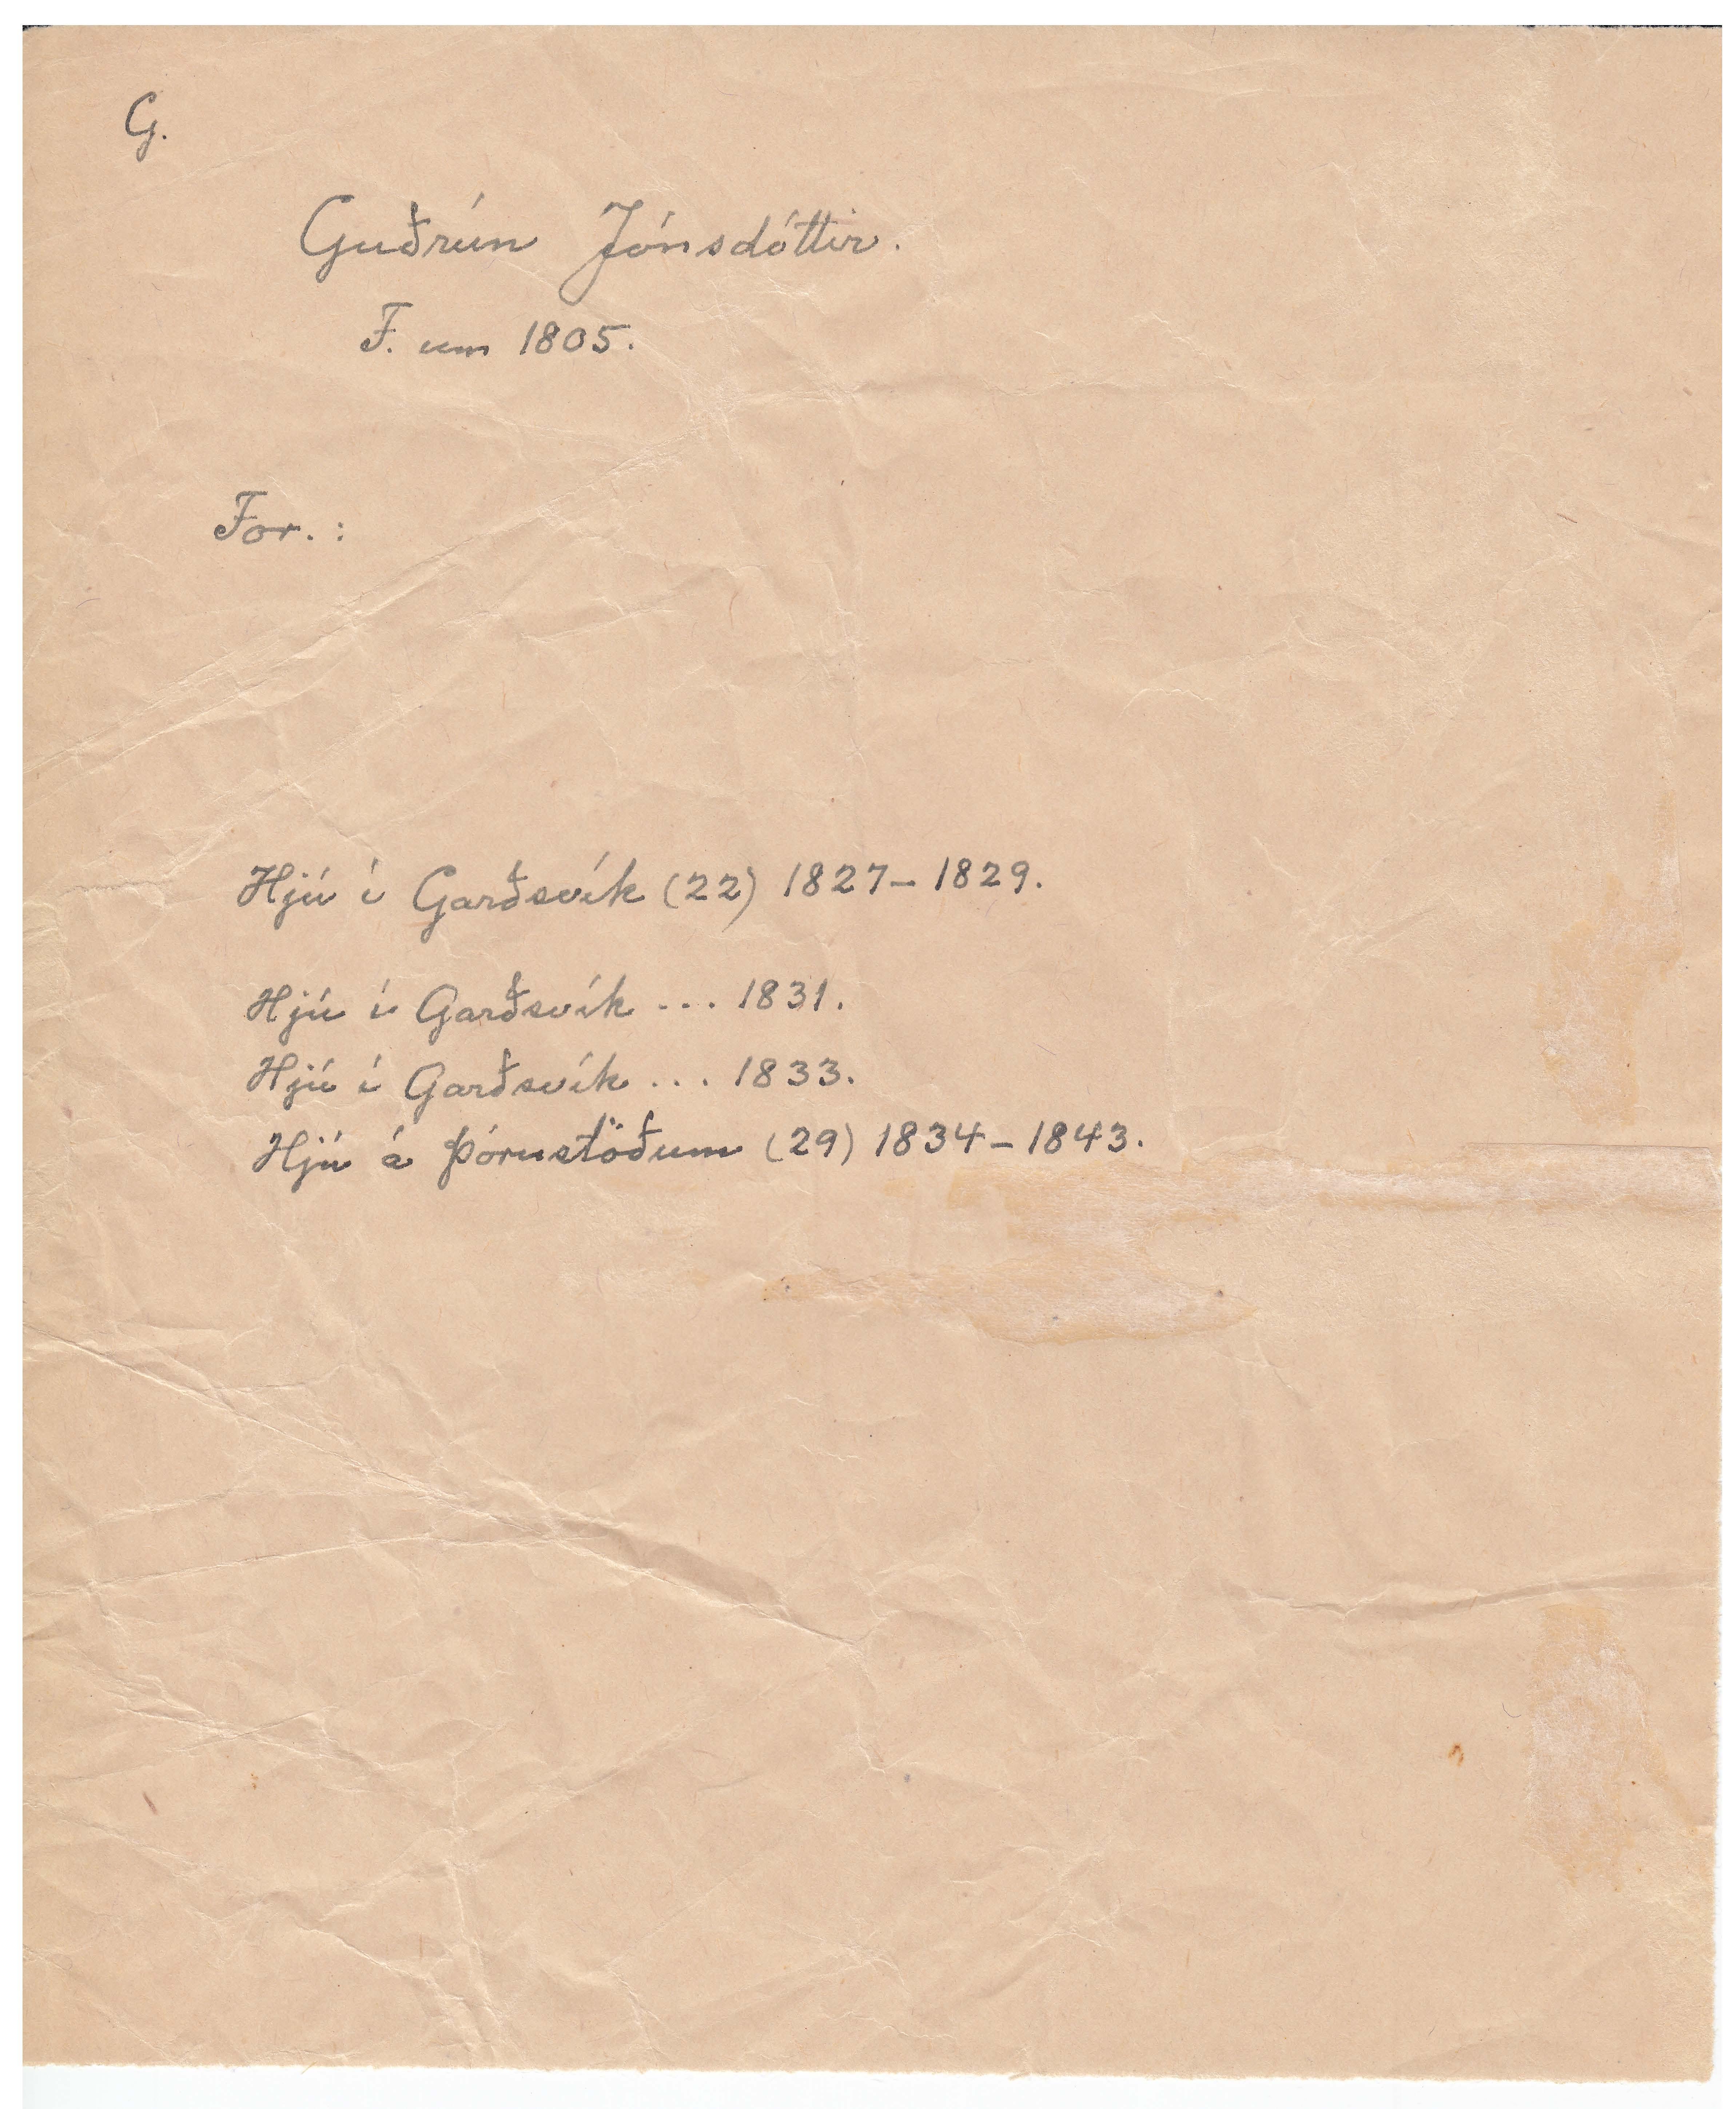 G.
Guðrún Jónsdóttir.
F. um 1805.
For.:
Hjú í Garðsvík (22) 1827-1829.
Hjú í Garðsvík ... 1831.
Hjú í Garðsvík ... 1833.
Hjú á Þórustöðum (29) 1834-1843.